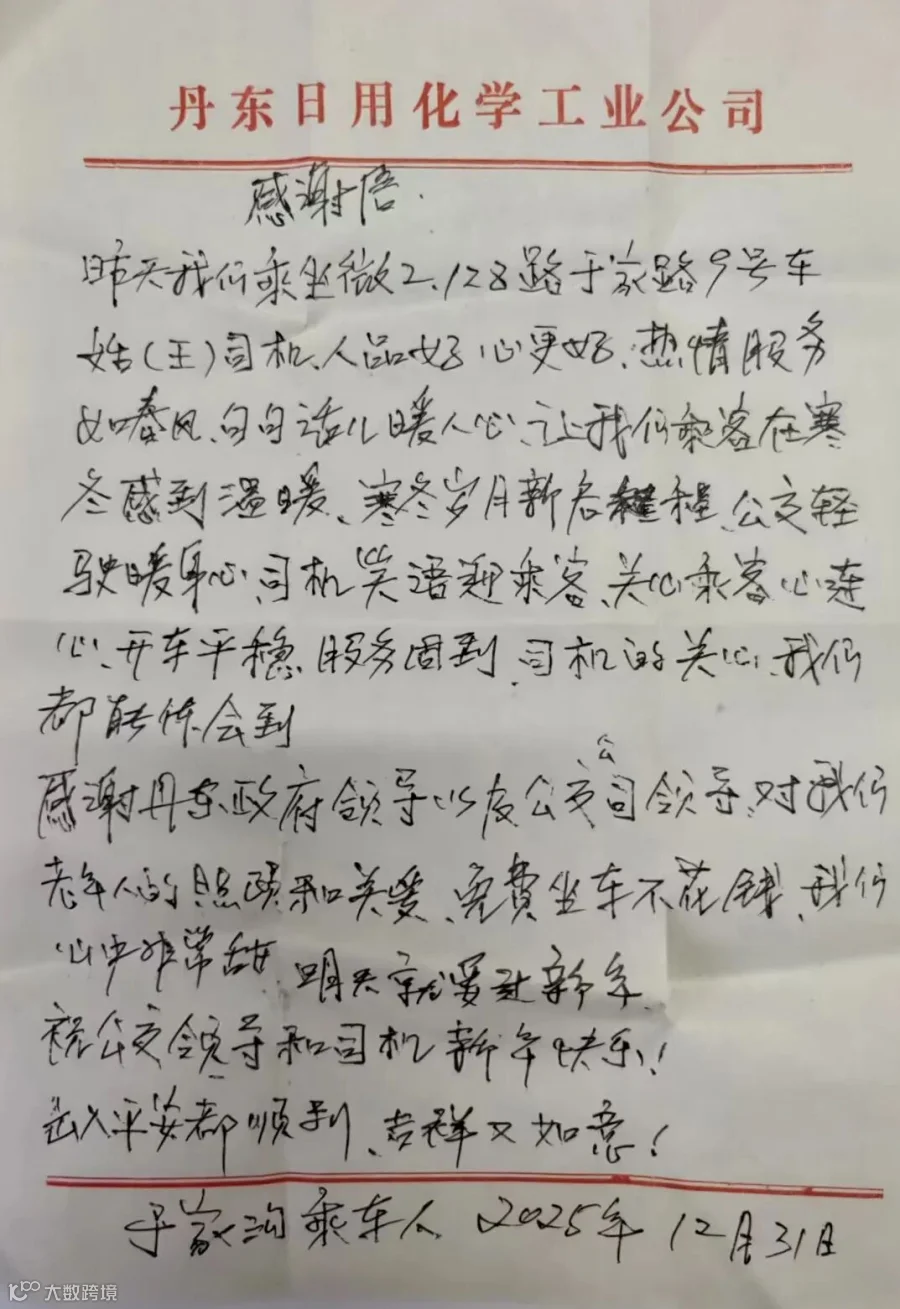 丹东日用化学工业公司
感谢信.
昨天我们乘坐微2、128路于家路9号车
姓(王)司机、人品好心更好、热情服务
如春风、句句话儿暖人心、让我们乘客在寒
冬感到温暖、寒冬岁月新名程、公交轻
驶暖身心、司机笑语迎乘客、关心乘客心连
心、开车平稳服务周到、司机的关心、我们
都能体会到
感谢丹东政府领导以及公交公司领导、对我们
老年人的照顾和关爱、免费坐车不花钱、我们
心中非常甜 明天就要过新年
祝公交领导和司机新年快乐!
出入平安都顺利、吉祥又如意!
于家沟乘车人 2025年12月31日
大数跨境